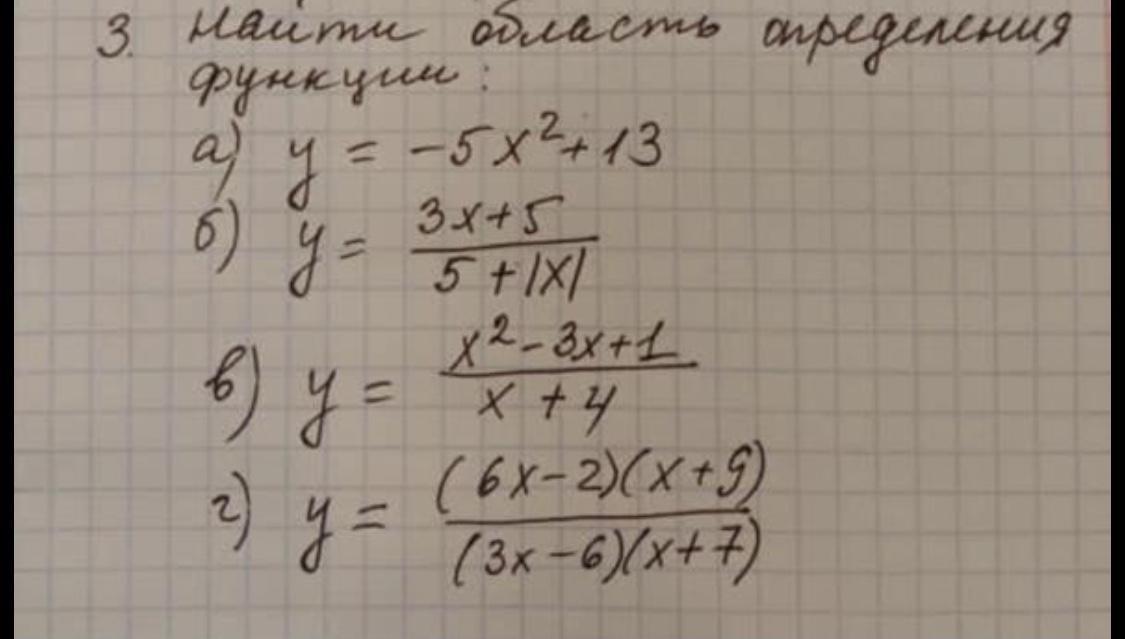 3. Найти область определения
функции:
а) y = -5x² + 13
б) y = (3x+5)/(5+|x|)
в) y = (x²-3x+1)/(x+4)
г) y = ((6x-2)(x+9))/((3x-6)(x+7))